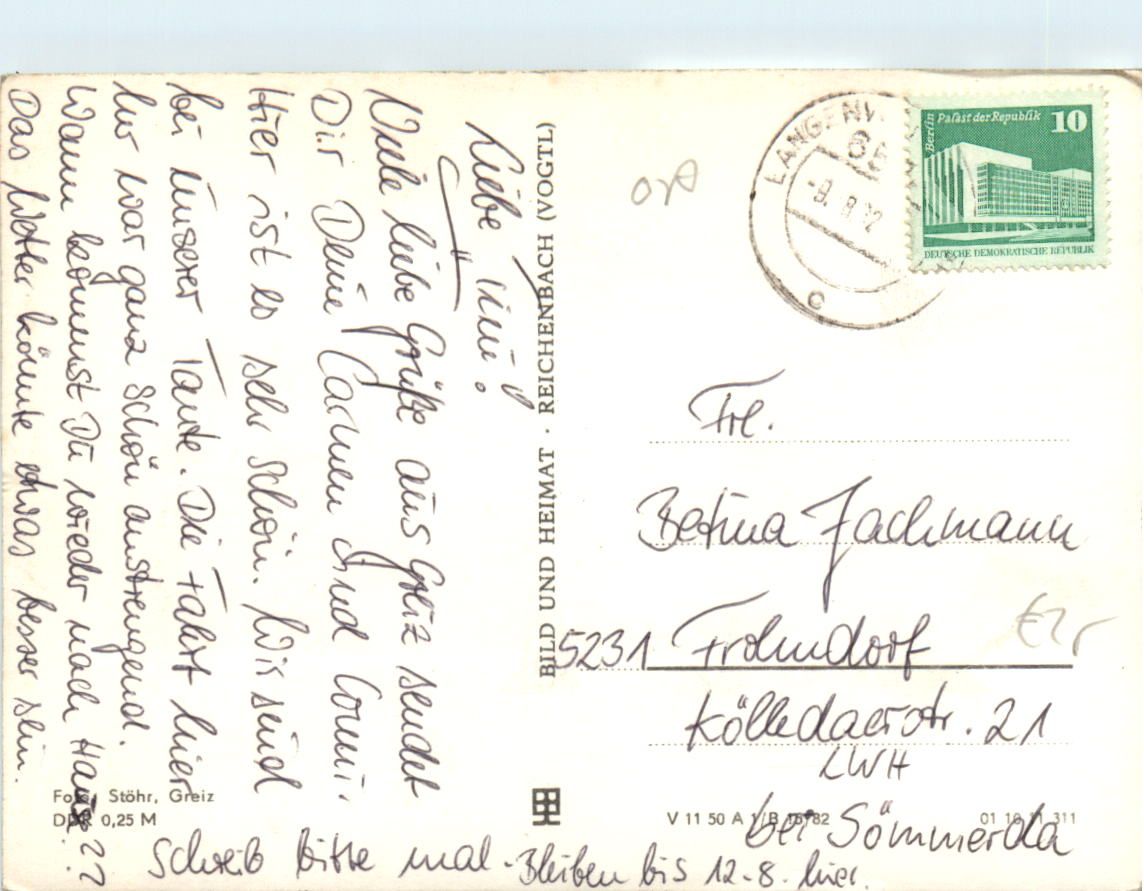 Liebe Tini!
Viele liebe Grüße aus Greiz sendet
Dir Deine Carmen und Conni.
Hier ist es sehr schön. Wir sind
bei unserer Tante. Die Fahrt hier
her war ganz schön anstrengend.
Wann kommst Du wieder nach Hause??
Das Wetter könnte etwas besser sein.
Schreib bitte mal. Bleiben bis 12.8. hier.
BILD UND HEIMAT · REICHENBACH (VOGTL)
Foto: Stöhr, Greiz
DDR 0,25 M
Berlin
Palast der Republik
10
DEUTSCHE DEMOKRATISCHE REPUBLIK
Frl.
Betina Jachmann
5231 Frohndorf
Kölledaerstr. 21
LWH
bei Sömmerda
V 11 50 A 1/B
01 10 11 311